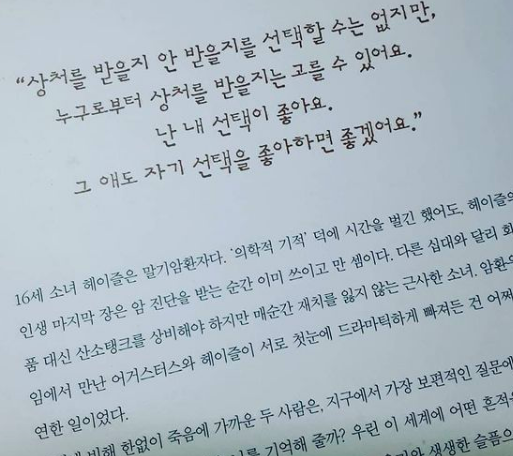 “상처를 받을지 안 받을지를 선택할 수는 없지만,
누구로부터 상처를 받을지는 고를 수 있어요.
난 내 선택이 좋아요.
그 애도 자기 선택을 좋아하면 좋겠어요.”
16세 소녀 헤이즐은 말기암환자다. ‘의학적 기적’ 덕에 시간을 벌긴 했어도, 헤이즐의
인생 마지막 장은 암 진단을 받는 순간 이미 쓰이고 만 셈이다. 다른 십대와 달리 화
품 대신 산소탱크를 상비해야 하지만 매순간 재치를 잃지 않는 근사한 소녀. 암환의
임에서 만난 어거스터스와 헤이즐이 서로 첫눈에 드라마틱하게 빠져든 건 어쩌
연한 일이었다.
비해 한없이 죽음에 가까운 두 사람은, 지구에서 가장 보편적인 질문에
기억해 줄까? 우린 이 세계에 어떤 흔적을
생생한 슬픔으